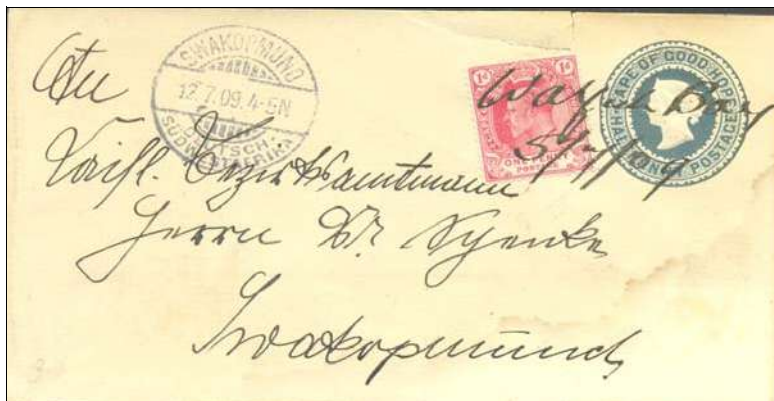 SWAKOPMUND
12.7.09.4-5N
DEUTSCH-
SÜDWESTAFRIKA
1d 1d
ONE PENNY
POSTAGE
CAPE OF GOOD HOPE
HALF PENNY POSTAGE
Walfish Bay
5/7/09
An
Kaisl. Bezirksamtmann
Herrn Dr. Schenke
Swakopmund